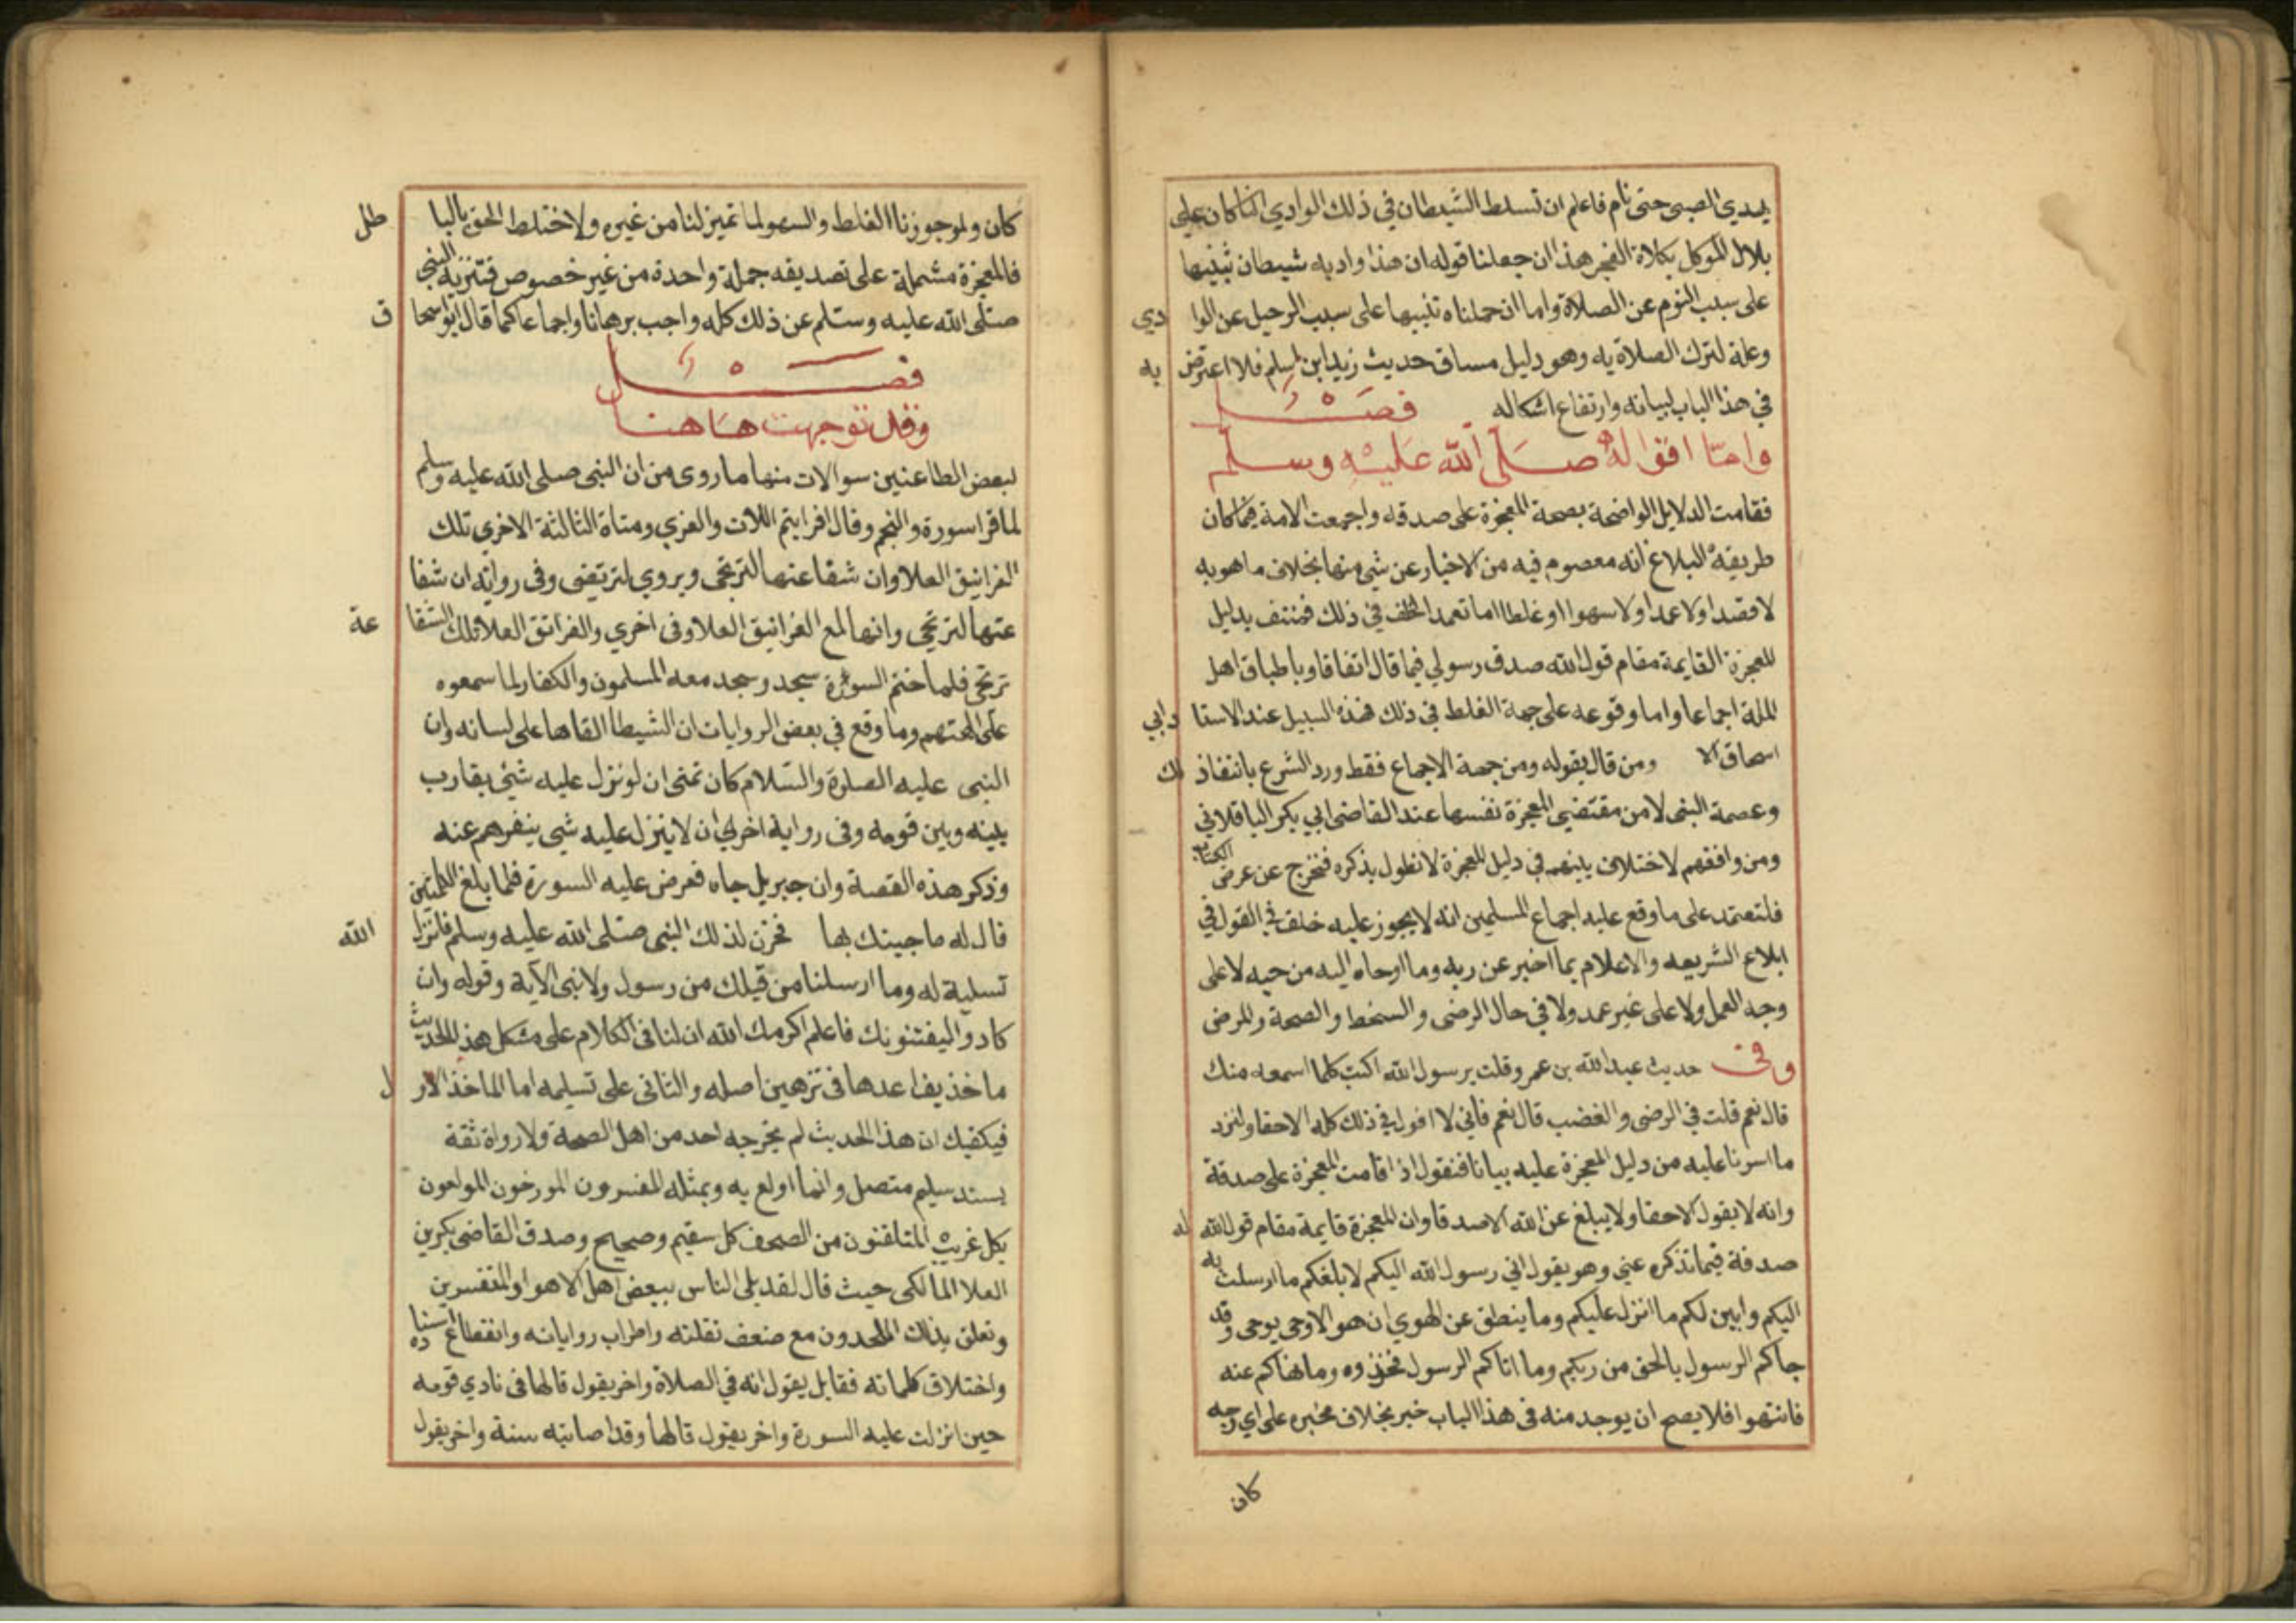 يهدي الصبي حتى نام فاعلم ان تسلط الشيطان في ذلك الوادي انما كان علي
بلال الموكل بكلاة الفجر هذا ان جعلنا قوله ان هذا واد به شيطان تنبيها
على سبب النوم عن الصلاة واما ان حملناه تنبيها على سبب الرحيل عن الوا دي
وعلة لترك الصلاة به وهو دليل مساق حديث زيد ابن اسلم فلا اعترض به
في هذا الباب لبيانه وارتفاع اشكاله فصل
واما اقواله صلى الله عليه وسلم
فقامت الدلايل الواضحة بصحة المعجزة على صدقه واجمعت الامة فيما كان
طريقه البلاغ انه معصوم فيه من الاخبار عن شي منها بخلاف ما هو به
لا قصدا ولا عمدا ولا سهوا او غلطا اما تعمد الخلف في ذلك فمنتف بدليل
المعجزة القايمة مقام قول الله صدق رسولي فيما قال اتفاقا وباطباق اهل
الملة اجماعا واما وقوعه على جهة الغلط في ذلك فهذه السبيل عند الاستا د ابي
اسحاق الا ومن قال بقوله ومن جهة الاجماع فقط وورد الشرع بانتفاذ لك
وعصمة النبى لا من مقتضي المعجزة نفسها عند القاضى ابي بكر الباقلاني
ومن وافقهم لاختلاف بينهم في دليل المعجزة لا نطول بذكره فنخرج عن غرض الكتاب
فلنعتمد على ما وقع عليه اجماع المسلمين انه لا يجوز عليه خلف في القول في
ابلاغ الشريعه والاعلام بما اخبر عن ربه وما اوحاه اليه من حيه لا على
وجه العمل ولا على غير عمد ولا في حال الرضى والسخط والصحة والمرض
وفي حديث عبد الله بن عمر وقلت يرسول الله اكتب كلما اسمعه منك
قال نعم قلت في الرضى والغضب قال نعم فاني لا اقول في ذلك كله الا حقا ولنزد
ما اسرنا عليه من دليل المعجزة عليه بيانا فنقول اذا قامت المعجزة على صدقة
وانه لا يقول الا حقا ولا يبلغ عن الله الا صدقا وان المعجزة قايمة مقام قول الله له
صدقة فيما تذكره عني وهو يقول اني رسول الله اليكم لابلغكم ما ارسلت به
اليكم وابين لكم ما انزل عليكم وما ينطق عن الهوي ان هو الا وحى يوحى وقد
جاكم الرسول بالحق من ربكم وما اتاكم الرسول فخذوه وما نهاكم عنه
فانتهوا فلا يصح ان يوجد منه فى هذا الباب خبر بخلاف مخبره على اي وجه
كان
كان ولو جوزنا الغلط والسهو لما تميز لنا من غيره ولاختلط الحق بالبا طل
فالمعجزة مشتملة على تصديقه جملة واحدة من غير خصوص فتنزيه النبي
صلى الله عليه وسلم عن ذلك كله واجب برهانا واجماعا كما قال ابو اسحا ق
فصل
وقد توجهت هاهنا
لبعض الطاعنين سوالات منها ما روى من ان النبى صلى الله عليه وسلم
لما قرا سورة والنجم وقال افرايتم اللات والعزي ومناة الثالثة الاخري تلك
الغرانيق العلا وان شفاعتها لترتجى ويروي لترتضى وفى رواية ان شفا
عتها لترتجى وانها لمع الغرانيق العلا وفى اخري والغرانق العلا تلك الشفا عة
ترتجى فلما ختم السورة سجد وسجد معه المسلمون والكفار لما سمعوه
اثنى على الهتهم وما وقع في بعض الروايات ان الشيطا القاها على لسانه وان
النبى عليه الصلوة والسلام كان تمنى ان لو نزل عليه شي يقارب
بينه وبين قومه وفى رواية اخرى ان لا ينزل عليه شى ينفرهم عنه
وذكر هذه القصة وان جبريل جاه فعرض عليه السورة فلما بلغ الكلمتين
قال له ما جيتك بها فحزن لذلك النبى صلى الله عليه وسلم فانزل الله
تسلية له وما ارسلنا من قبلك من رسول ولا نبى الآية وقوله وان
كادوا ليفتنونك فاعلم اكرمك الله ان لنا فى الكلام على مشكل هذا الحديث
ماخذين احدها فى توهين اصله والثانى على تسليمه اما الماخذ الاو ل
فيكفيك ان هذا الحديث لم يخرجه احد من اهل الصحة ولا رواة ثقة
بسند سليم متصل وانما اولع به وبمثله المفسرون المورخون المولعون
بكل غريب المتلقفون من الصحف كل سقيم وصحيح وصدق القاضى بكر بن
العلا المالكى حيث قال لقد بلى الناس ببعض اهل الاهوا والتفسرين
وتعلق بذلك الملحدون مع ضعف نقلته واطراب رواياته وانقطاع اسناده
واختلاف كلماته فقايل يقول انه في الصلاة واخر يقول قالها فى نادي قومه
حين انزلت عليه السورة واخر يقول قالها وقد اصابته سنة واخر يقول